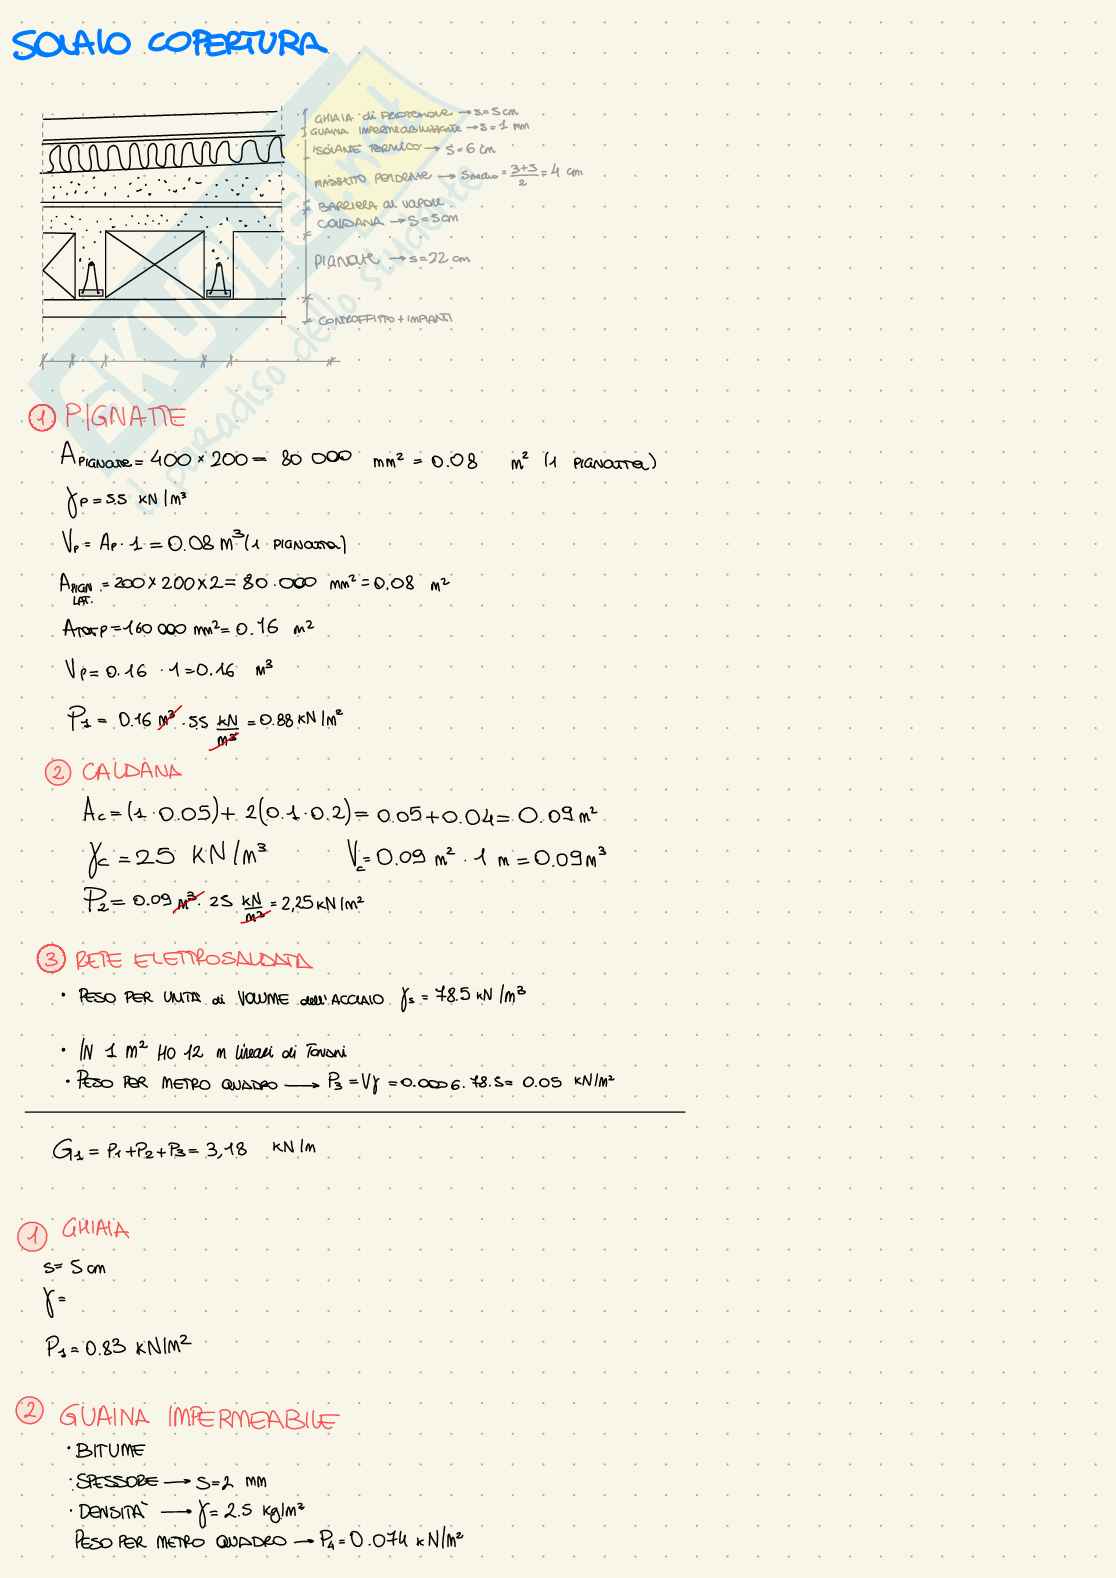 SOLAIO COPERTURA
GHIAIA di PROTEZIONE → s=5cm
GUAINA IMPERMEABILIZZANTE → s=1 mm
ISOLANTE TERMICO → s=6 cm
MASSETTO PENDENZE → S MEDIO = 3+5/2 = 4 cm
BARRIERA al VAPORE
CALDANA → S=5cm
PIGNATTE → s=22 cm
CONTROFFITTO + IMPIANTI
SKUOLA.net
il paradiso dello studente
1 PIGNATTE
A PIGNATTE = 400 × 200 = 80 000 mm² = 0.08 m² (1 PIGNATTA)
γp = 5.5 kN/m³
Vp = Ap · 1 = 0.08 m³ (1 PIGNATTA)
A PIGN. LAT. = 200 × 200 × 2 = 80.000 mm² = 0,08 m²
A TOT P = 160 000 mm² = 0.16 m²
Vp = 0.16 · 1 = 0.16 m³
P1 = 0.16 m³ · 5.5 kN/m³ = 0.88 kN/m²
2 CALDANA
Ac = (1 · 0.05) + 2(0.1 · 0.2) = 0.05 + 0.04 = 0.09 m²
γc = 25 KN/m³ Vc = 0.09 m² · 1 m = 0.09 m³
P2 = 0.09 m³ · 25 kN/m² = 2,25 kN/m²
3 RETE ELETTROSALDATA
• PESO PER UNITÀ di VOLUME dell'ACCIAIO γs = 78.5 kN/m³
• IN 1 m² HO 12 m lineari di Tondini
• PESO PER METRO QUADRO → P3 = Vγ = 0.0006 · 78.5 = 0.05 KN/m²
G1 = P1 + P2 + P3 = 3,18 KN/m
1 GHIAIA
s = 5 cm
γ =
P1 = 0.83 KN/m²
2 GUAINA IMPERMEABILE
• BITUME
• SPESSORE → S=2 mm
• DENSITÀ → γ = 2.5 kg/m²
PESO PER METRO QUADRO → P4 = 0.074 kN/m²